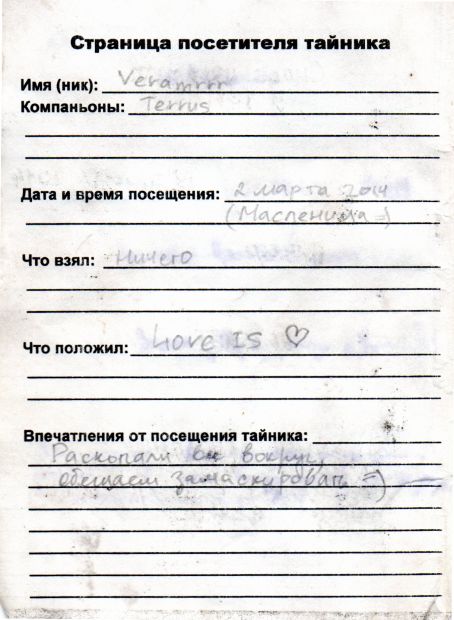 Страница посетителя тайника
Имя (ник): Veramrrr
Компаньоны: Terrus
Дата и время посещения: 2 марта 2014
(Масленица =)
Что взял: Ничего
Что положил: Love IS ♡
Впечатления от посещения тайника:
Раскопали вокруг,
обещаем замаскировать =)